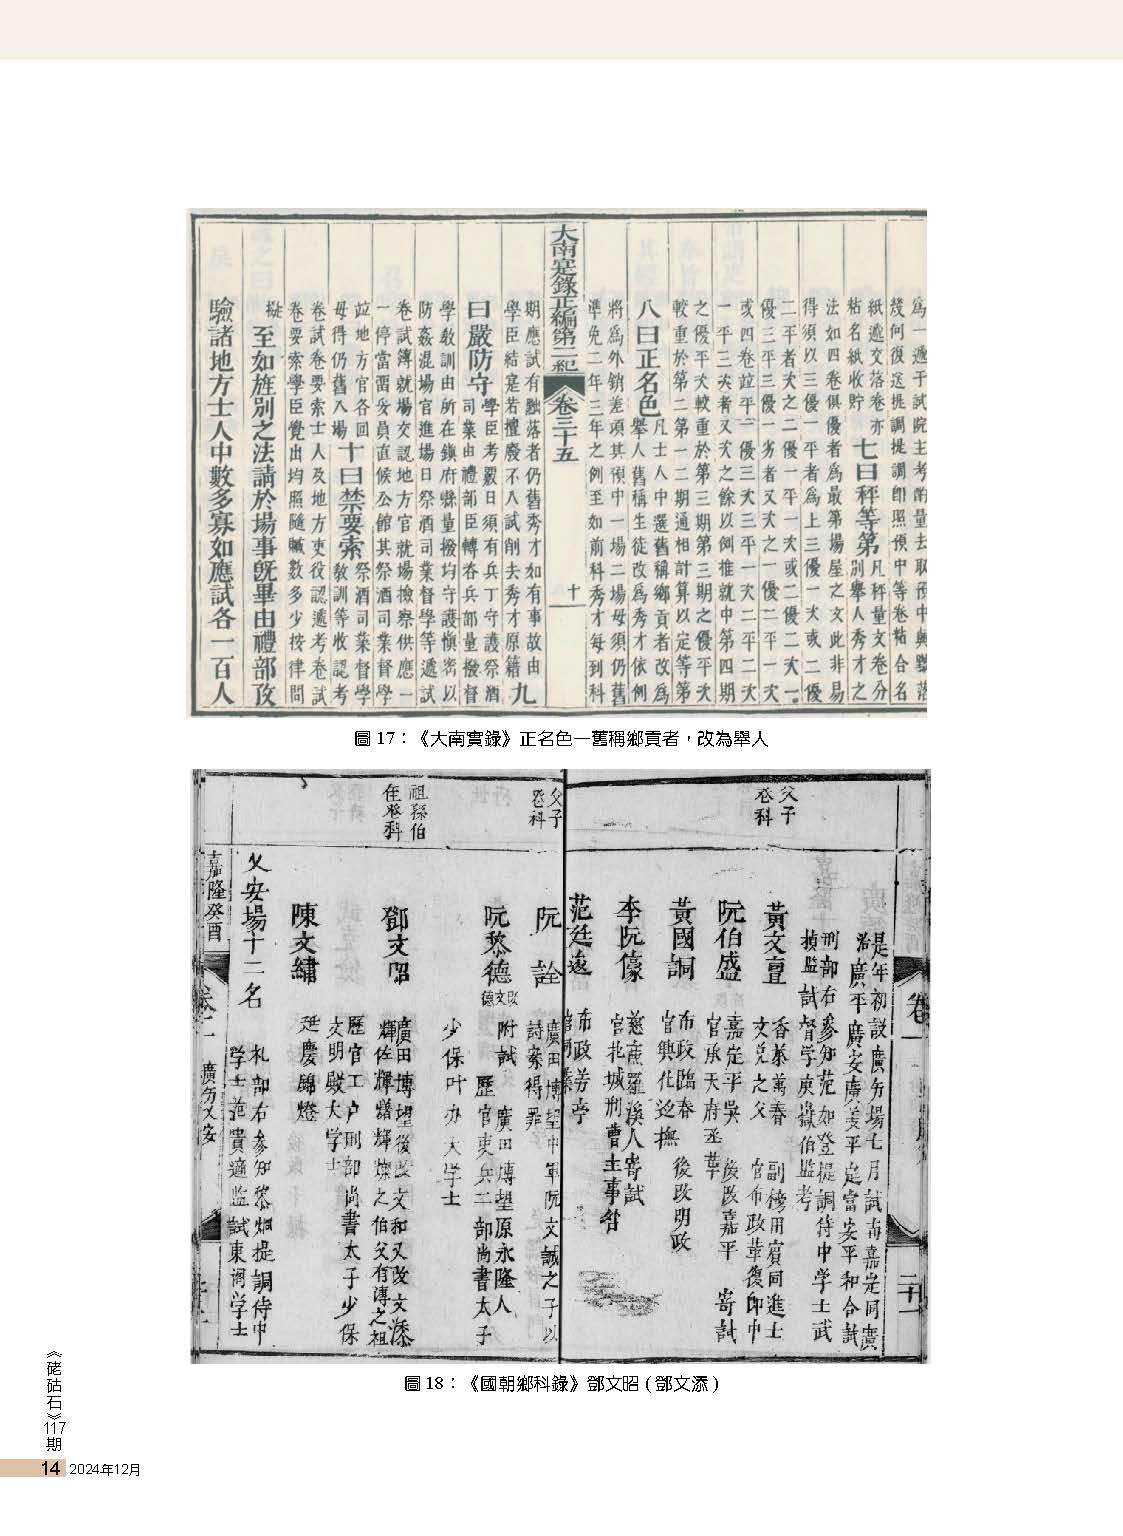 爲一遞于試院主考酌量去取預中與黜落
幾何復送提調提調卽照預中等卷粘合名
紙遞文落卷亦
粘名紙收貯
七曰秤等第
凡秤量文卷分
別舉人秀才之
法如四卷俱優者爲最第場屋之文此非易
得須以三優一平者爲上三優一次或二優
二平者次之二優一平一次或二優二次一
優三平三優一劣者又次之一優二平一次
或四卷竝平一優三次三平一次二平二次
一平三次者又次之餘以例推就中第四期
之優平次較重於第三期第三期之優平次
較重於第二第一二期通相計算以定等第
八曰正名色
凡士人中選舊稱鄉貢者改爲
舉人舊稱生徒改爲秀才依例
將爲外銷差項其預中一場二場毋須仍舊
準免二年三年之例至如前科秀才每到科
大南寔錄正編第二紀
卷三十五
十
期應試有黜落者仍舊秀才如有事故由
學臣結寔若擅廢不入試削去秀才原籍
九
曰嚴防守
學臣考覈日須有兵丁守護祭酒
司業由禮部臣轉咨兵部量撥督
學敎訓由所在鎮府縣量撥均守護愼密以
防姦混場官進場日祭酒司業督學等遞試
卷試簿就場交認地方官就場撿察供應一
一停當畱妥員直候公館其祭酒司業督學
竝地方官各回
毋得仍舊入場
十曰禁要索
祭酒司業督學
敎訓等收認考
卷試卷要索士人及地方吏役認遞考卷試
卷要索學臣覺出均照隨贓數多少按律問
擬
至如旌別之法請於場事旣畢由禮部攷
驗諸地方士人中數多寡如應試各一百人
圖 17：《大南實錄》正名色—舊稱鄉貢者，改為舉人
父子
登科
父子
登科
祖孫伯
侄登科
是年初設廣分場七月試肓嘉定同廣
治廣平廣安廣義平定富安平和合試
刑部右參知范如登提調侍中学士武
楨監試督学庾嶽伯監考
黃文亶
香茶萬春 副榜用賓同進士
文兌之父 官布政革復郎中
阮伯盛
嘉定平吳 後改嘉平 寄試
官承天府丞革
黃國詗
布政臨春 後改明政
官興化巡撫
李阮儫
慈廉羅溪人寄試
官北城刑曹主事
范廷遠
布政芳亭
阮詮
廣田博望中軍阮文誠之子以
詩案得罪
阮黎德
附試 廣田博望原永隆人
歷官吏兵二部尚書太子
少保叶办大学士
鄧文昭
廣田博望後改文和又改文添
輝佐輝𤏸輝㷟之伯父有漙之祖
歷官工户刑部尚書太子少保
文明殿大学士
陳文繡
延慶歸燈
乂安場十二名
礼部右參知黎烱提調侍中
学士范貴適監試東阁学士
嘉隆癸酉
廣分乂安
圖 18：《國朝鄉科錄》鄧文昭 ( 鄧文添 )
《硓𥑮石》117期
14 2024年12月